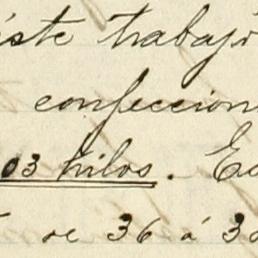 éste trabajo
confeccion
03 hilos. E
de 36 á 3